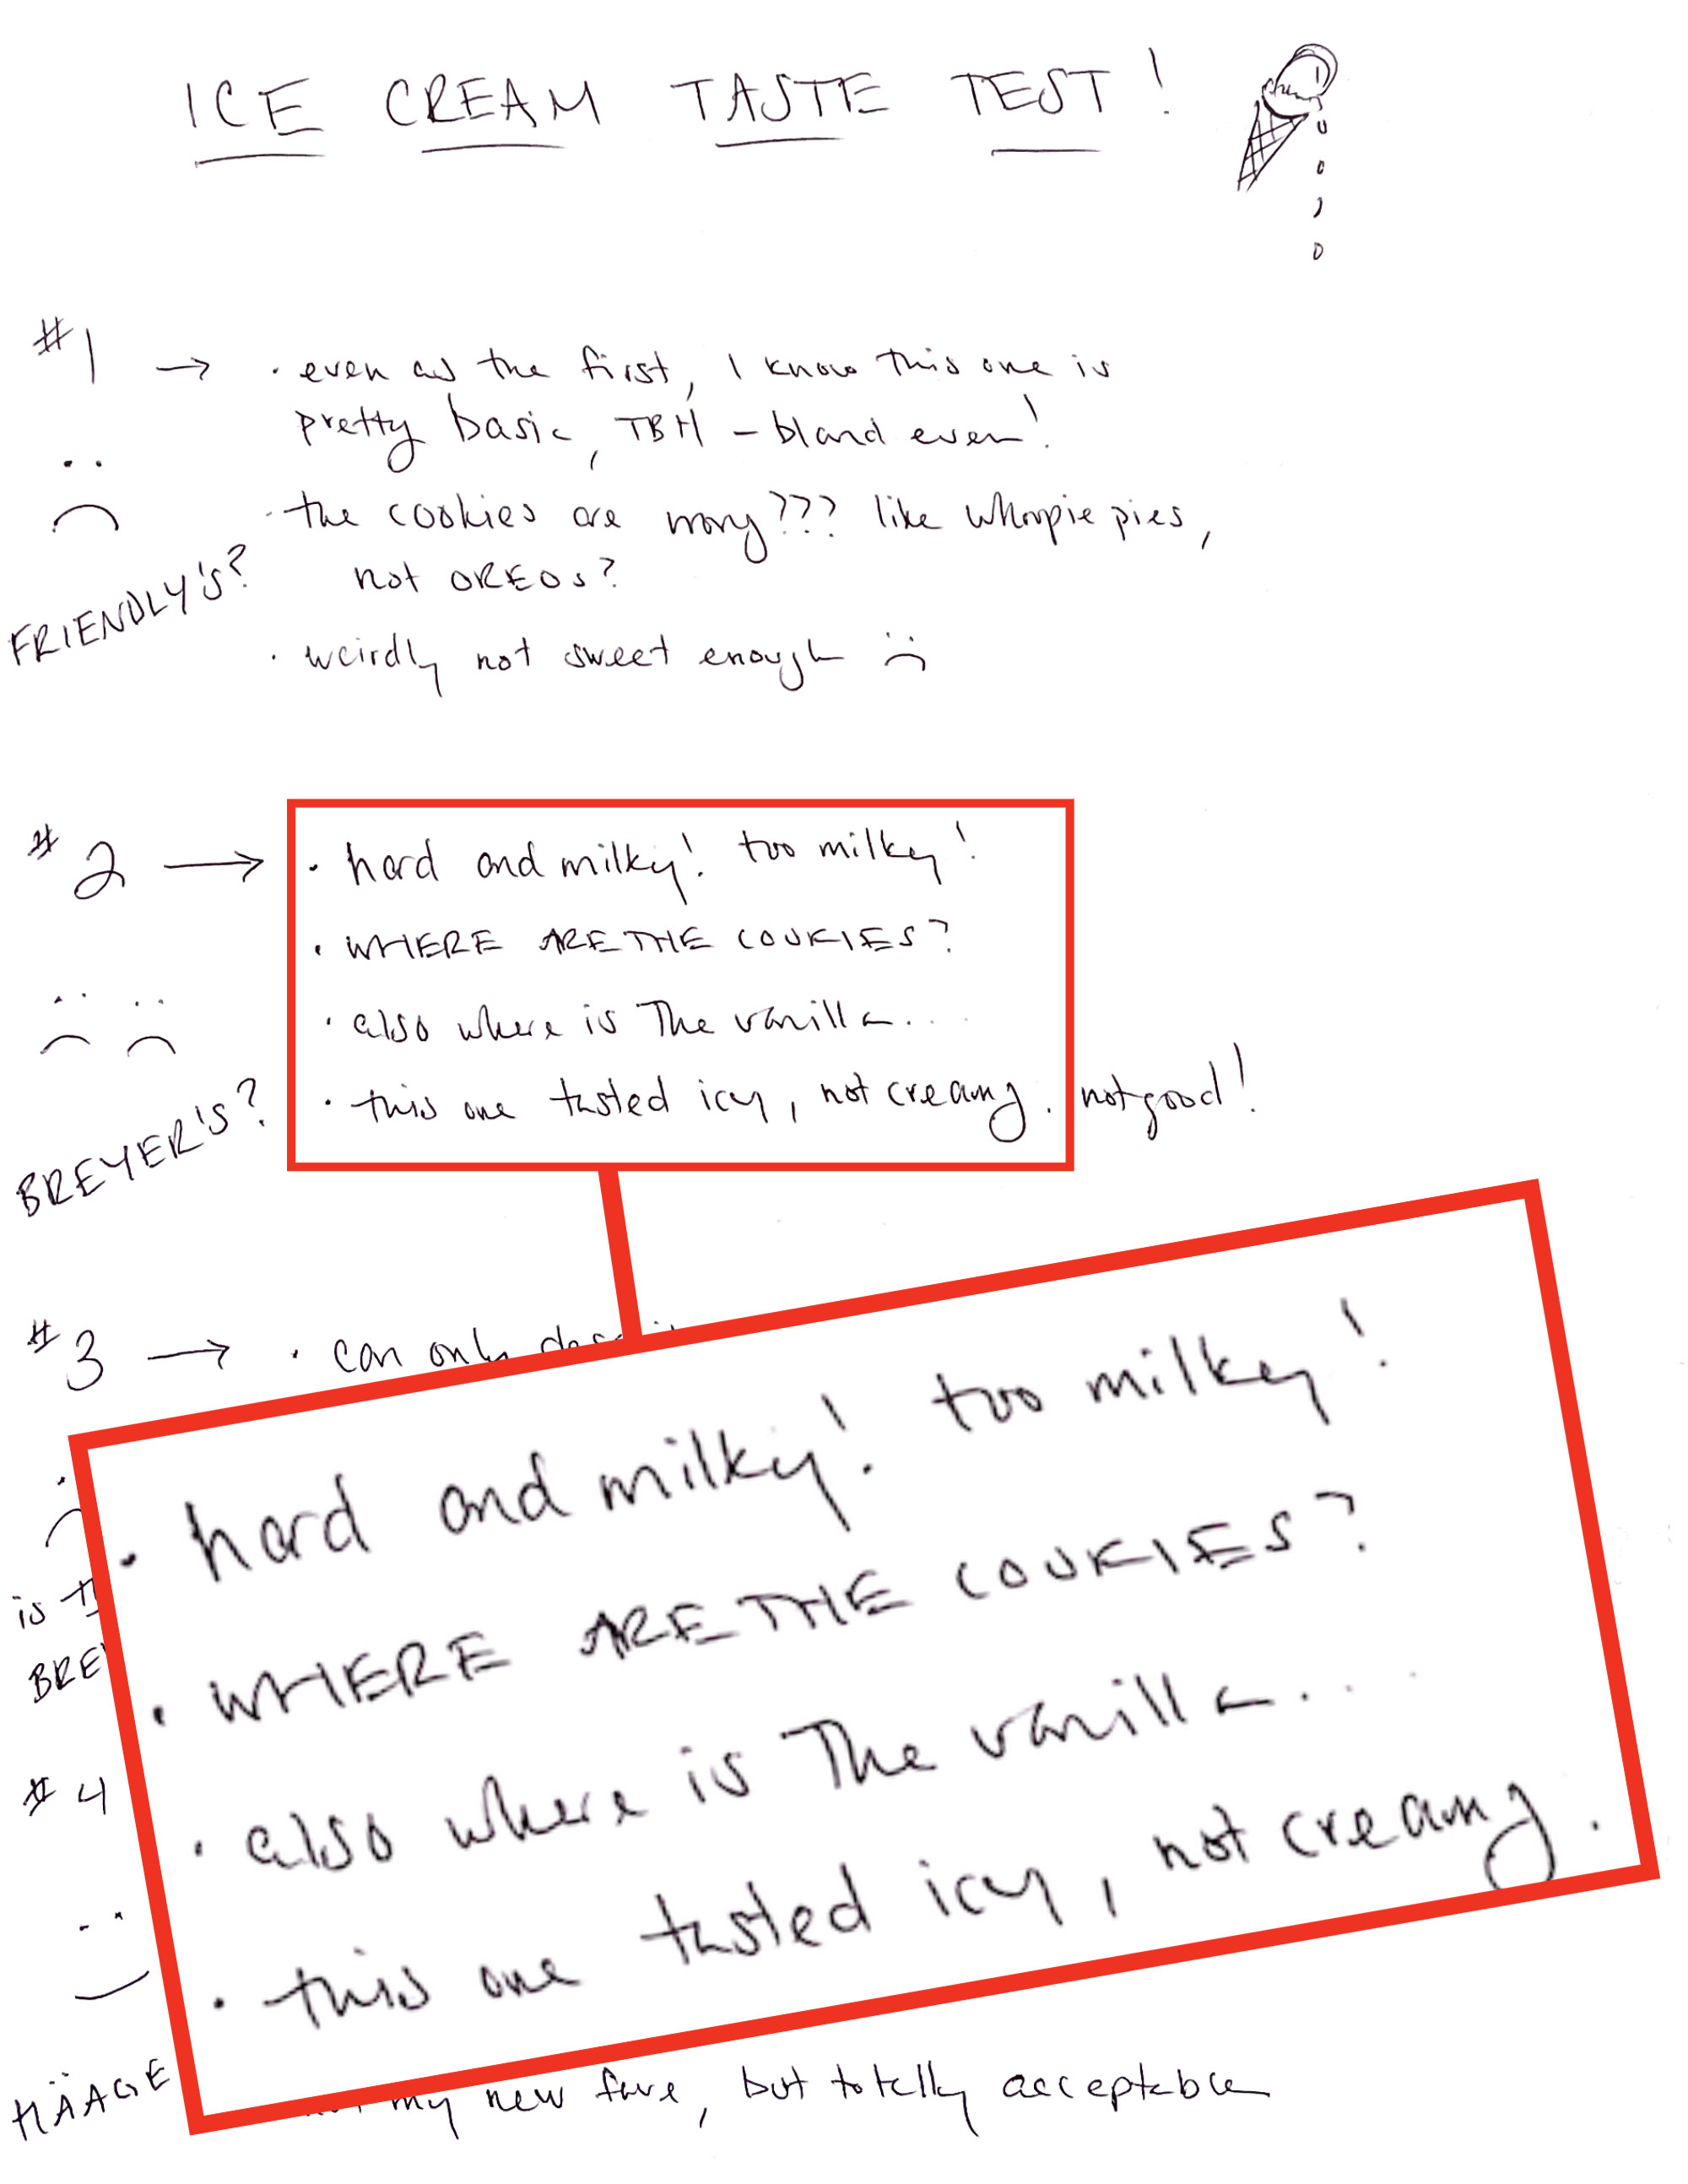 ICE CREAM TASTE TEST!
#1 → • even as the first, I know this one is
pretty basic, TBH – bland even!
• the cookies are wrong??? like whoopie pies,
not OREOs?
FRIENDLY'S?
• weirdly not sweet enough :(
#2 → • hard and milky! too milky!
• WHERE ARE THE COOKIES?
• also where is The vanilla...
• this one tasted icy, not creamy. not good!
BREYER'S?
#3 → • can only
• hard and milky! too milky!
• WHERE ARE THE COOKIES?
• also where is The vanilla...
• this one tasted icy, not creamy.
is
BRE
#4
HÄAGE
my new fave, but totally acceptable